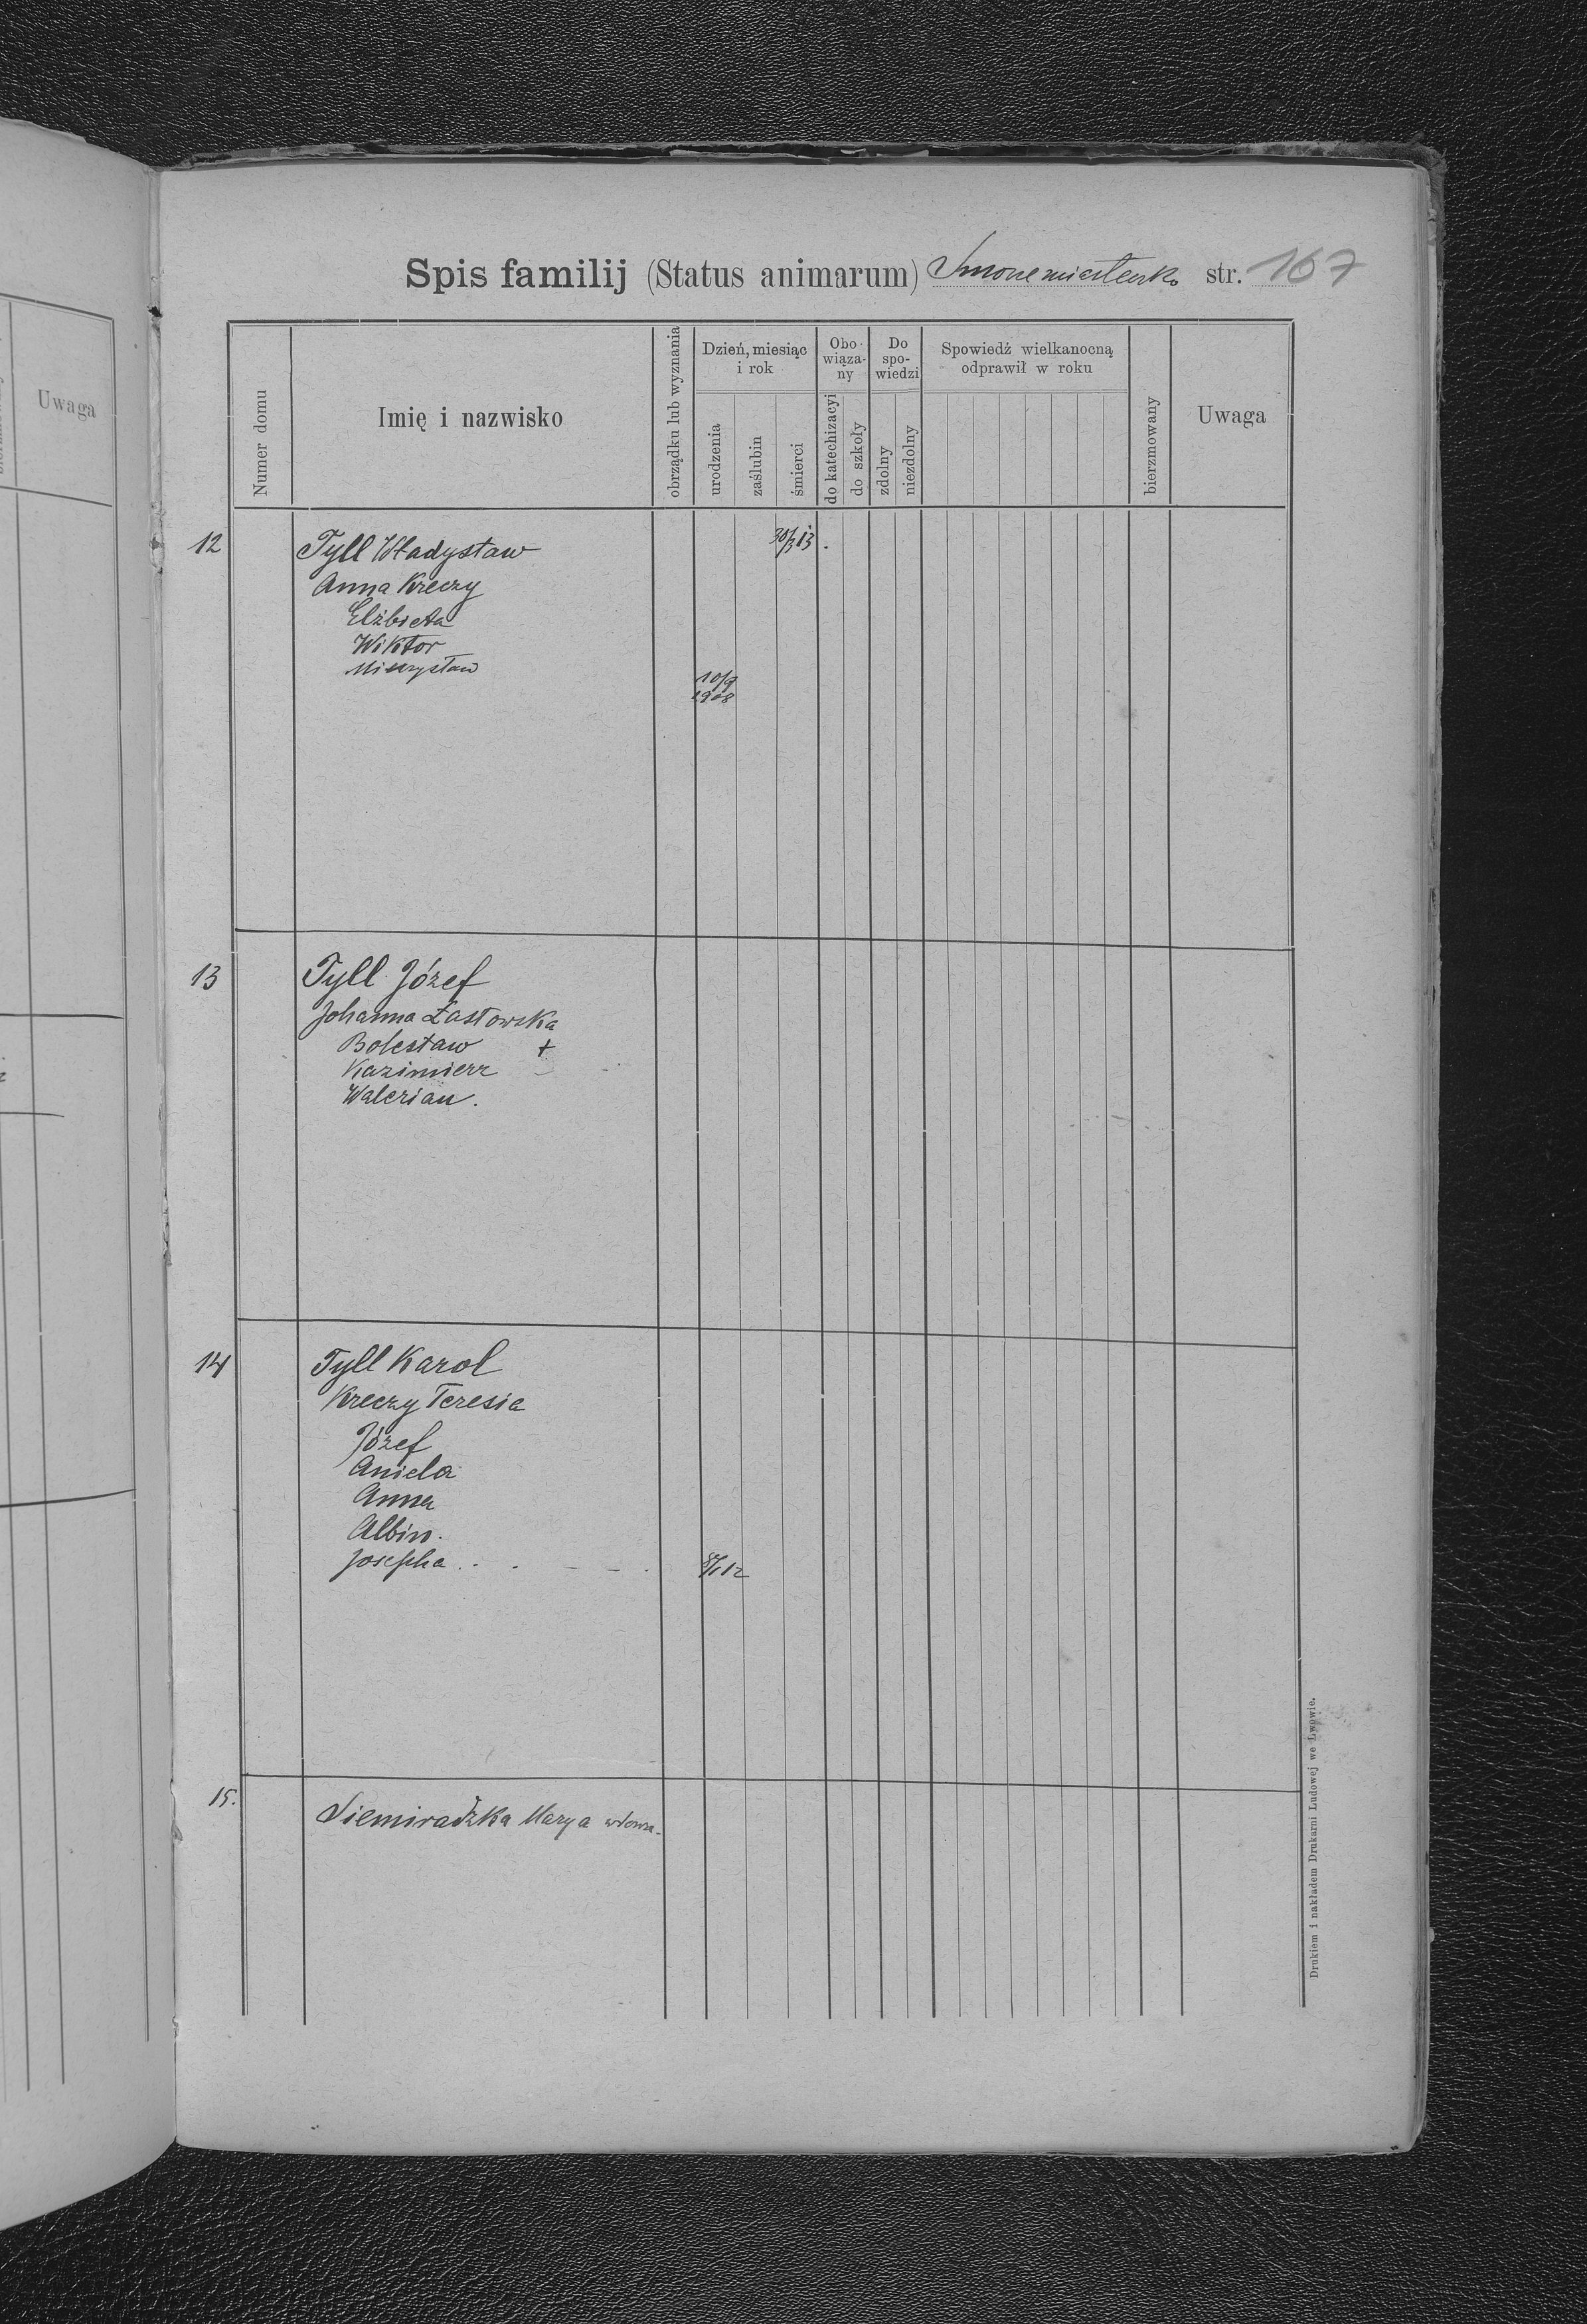 Uwaga
Spis familij (Status animarum) str. 167
Numer domu
Imię i nazwisko
obrządku lub wyznania
Dzień, miesiąc i rok
urodzenia
zaślubin
śmierci
Obo-
wiąza-
ny
do katechizacyi
do szkoły
Do
spo-
wiedzi
zdolny
niezdolny
Spowiedź wielkanocną
odprawił w roku
bierzmowany
Uwaga
12 Tyll Władysław 30/3 13.
Anna Kreczy
Elżbieta
Wiktor
Mieczysław
10/9
1908
13 Tyll Józef
Johanna Łastowska
Bolesław +
Kazimierz
Walerian.
14 Tyll Karol
Kreczy Teresia
Józef
Aniela
Anna
Albin.
Josepha . . - - . 8/1 12
15. Siemiradzka Marya wdowa
Drukiem i nakładem Drukarni Ludowej we Lwowie.